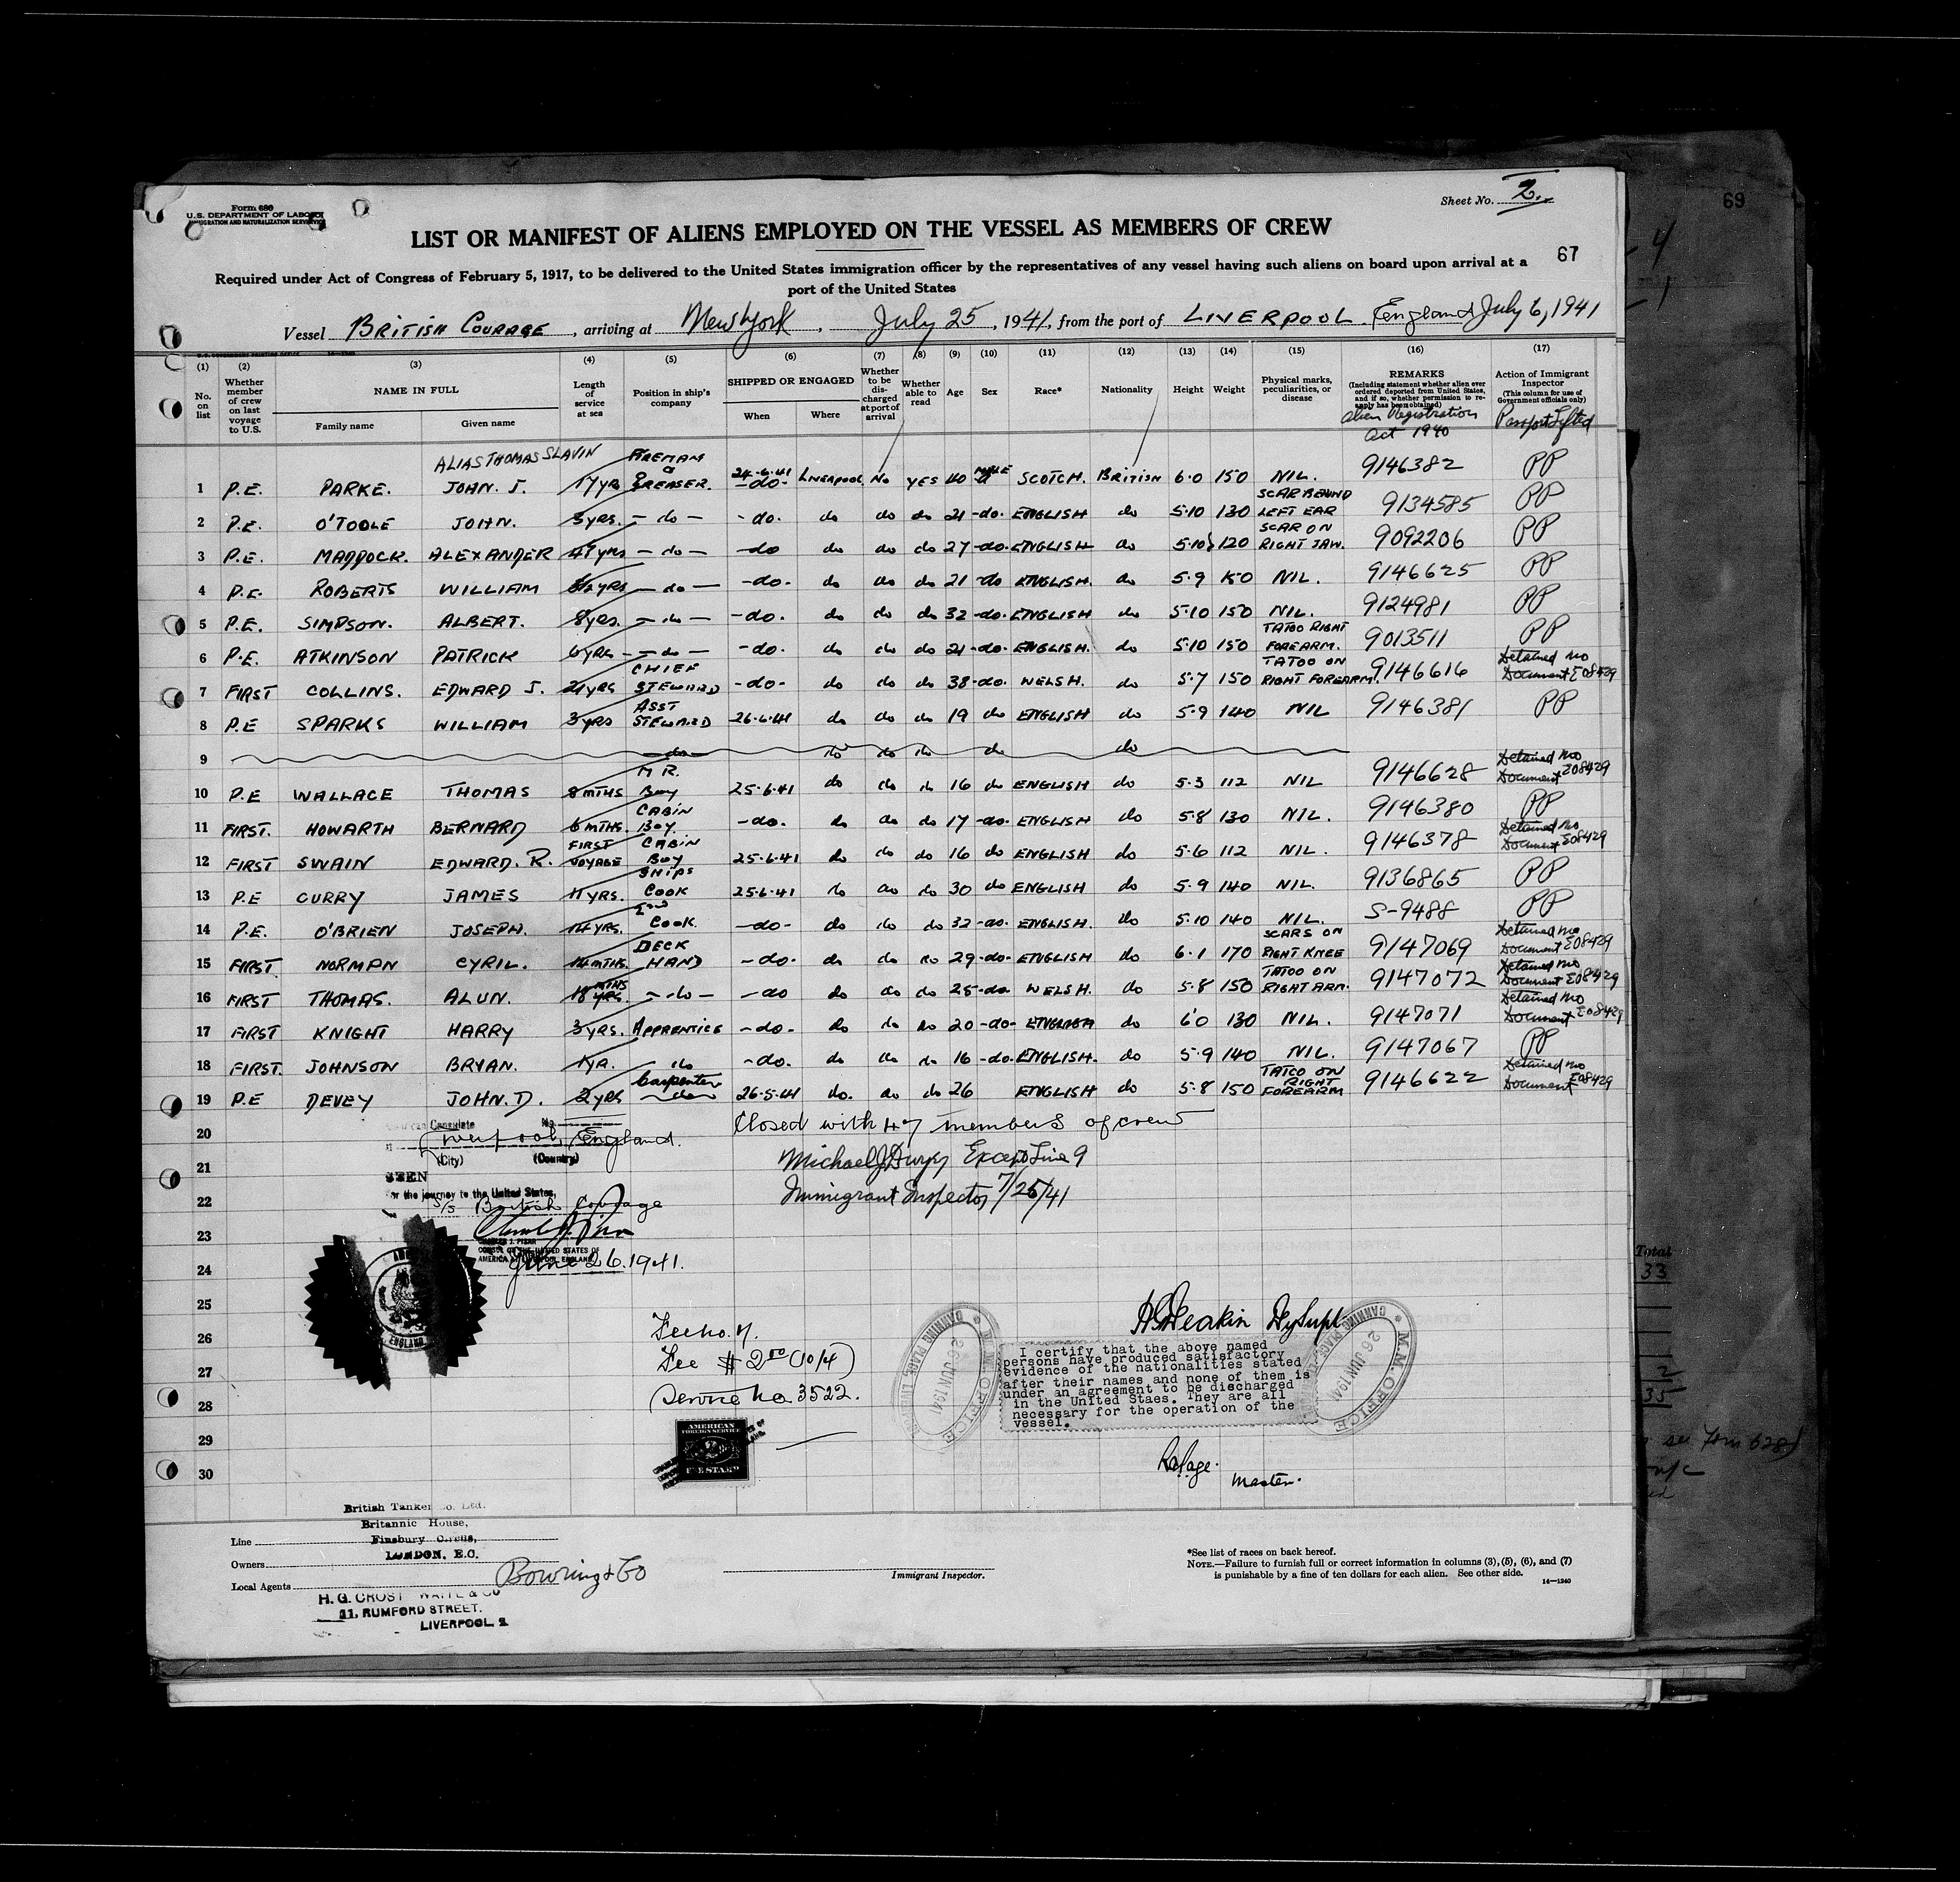 Form 680
U.S. DEPARTMENT OF LABOR
IMMIGRATION AND NATURALIZATION SERVICE
Sheet No. 2.
LIST OR MANIFEST OF ALIENS EMPLOYED ON THE VESSEL AS MEMBERS OF CREW
67
Required under Act of Congress of February 5, 1917, to be delivered to the United States immigration officer by the representatives of any vessel having such aliens on board upon arrival at a
port of the United States
Vessel BRITISH COURAGE, arriving at New York, July 25, 1941, from the port of LIVERPOOL. England July 6, 1941
(1) (2) (3) (4) (5) (6) (7) (8) (9) (10) (11) (12) (13) (14) (15) (16) (17)
No. on list
Whether member of crew on last voyage to U.S.
NAME IN FULL
Family name Given name
Length of service at sea
Position in ship's company
SHIPPED OR ENGAGED
When Where
Whether to be discharged at port of arrival
Whether able to read
Age
Sex
Race*
Nationality
Height
Weight
Physical marks, peculiarities, or disease
REMARKS
(Including statement whether alien ever ordered deported from United States, and if so, whether permission to reapply has been obtained)
Alien Registration Act 1940
Action of Immigrant Inspector
(This column for use of Government officials only)
Passport Lifted
ALIAS THOMAS SLAVIN
1 P.E. PARKE. JOHN. J. 17 yrs FIREMAN a GREASER. 24.6.41 -do- LIVERPOOL No YES 40 MALE SCOTCH. BRITISH 6.0 150 NIL. 9146382 PP
2 P.E. O'TOOLE JOHN. 3 yrs. - do - - do. do do do 21 -do. ENGLISH do 5.10 130 SCAR BEHIND LEFT EAR 9134585 PP
3 P.E. MADDOCK. ALEXANDER yrs - do - -do do do do 27 -do. ENGLISH do 5.10½ 120 SCAR ON RIGHT JAW. 9092206 PP
4 P.E. ROBERTS WILLIAM yrs - do - -do- do do do 21 -do ENGLISH. do 5.9 150 NIL. 9146625 PP
5 P.E. SIMPSON. ALBERT. 8 yrs. - do - -do. do do do 32 -do. ENGLISH do 5.10 150 NIL. 9124981 PP
6 P.E. ATKINSON PATRICK 6 yrs - do - -do. do do do 21 -do. ENGLISH. do 5.10 150 TATOO RIGHT FOREARM. 9013511 PP
7 FIRST COLLINS. EDWARD J. 21 yrs CHIEF STEWARD -do- do do do 38 -do. WELSH. do 5.7 150 TATOO ON RIGHT FOREARM. 9146616 Detained no Document E08429
8 P.E SPARKS WILLIAM 3 yrs ASST STEWARD 26.6.41 do do do 19 do ENGLISH do 5.9 140 NIL 9146381 PP
9 do do do do do do
10 P.E WALLACE THOMAS 8 MTHS M R. Boy 25.6.41 do do do 16 do ENGLISH do 5.3 112 NIL 9146628 Detained no Document E08429
11 FIRST. HOWARTH BERNARD 6 MTHS. CABIN Boy. -do. do do do 17 -do. ENGLISH do 5.8 130 NIL. 9146380 PP
12 FIRST SWAIN EDWARD. R. FIRST VOYAGE CABIN BOY 25.6.41 do do do 16 do ENGLISH do 5.6 112 NIL. 9146378 Detained no Document E08429
13 P.E CURRY JAMES 11 YRS. SHIPS COOK 25.6.41 do do do 30 do ENGLISH do 5.9 140 NIL. 9136865 PP
14 P.E. O'BRIEN JOSEPH. 14 YRS. 2nd COOK. -do- do do do 32 -do. ENGLISH. do 5.10 140 NIL. S-9488 PP
15 FIRST. NORMAN CYRIL. 14 MTHS. DECK HAND -do. do do do 29 -do- ENGLISH do 6.1 170 SCARS ON RIGHT KNEE 9147069 Detained no Document E08429
16 FIRST THOMAS. ALUN. 18 MTHS YRS - do - -do do do do 25 -do WELSH. do 5.8 150 TATOO ON RIGHT ARM. 9147072 Detained no Document E08429
17 FIRST KNIGHT HARRY 3 YRS. APPRENTICE -do- do do do 20 -do- ENGLISH do 6.0 130 NIL. 9147071 Detained no Document E08429
18 FIRST. JOHNSON BRYAN. 1 YR. do -do. do do do 16 -do. ENGLISH. do 5.9 140 NIL. 9147067 PP
19 P.E DEVEY JOHN. D. 2 yrs Carpenter do 26.5.41 do. do do 26 ENGLISH do 5.8 150 TATOO ON RIGHT FOREARM 9146622 Detained no Document E08429
20 Closed with 47 members of crew
21 Except Line 9
22 Immigrant Inspector 7/25/41
23
24
25
26
27
28
29
30
Consulate No.
Liverpool, England.
(City) (Country)
SEEN
for the journey to the United States,
S/S British Courage
CONSUL OF THE UNITED STATES OF
AMERICA AT LIVERPOOL, ENGLAND
June 26. 1941.
Fee $ 2.00 (10/4)
Service No 3522.
AMERICAN
FOREIGN SERVICE
FEE STAMP
H Deakin Dy Supt
CANNING PLACE, LIVERPOOL
26 JUN 1941
M.M. OFFICE
I certify that the above named
persons have produced satisfactory
evidence of the nationalities stated
after their names and none of them is
under an agreement to be discharged
in the United Staes. They are all
necessary for the operation of the
vessel.
CANNING PLACE, LIVERPOOL
26 JUN 1941
M.M. OFFICE
Master.
British Tanker Co. Ltd.
Britannic House,
Line Finsbury Circus,
Owners LONDON, E.C.
Local Agents Bowring & Co
H. G. CROST WAITE & Co
11, RUMFORD STREET,
LIVERPOOL 2
Immigrant Inspector.
*See list of races on back hereof.
NOTE.—Failure to furnish full or correct information in columns (3), (5), (6), and (7)
is punishable by a fine of ten dollars for each alien. See other side.
14—1240
69
Total
33
2
35